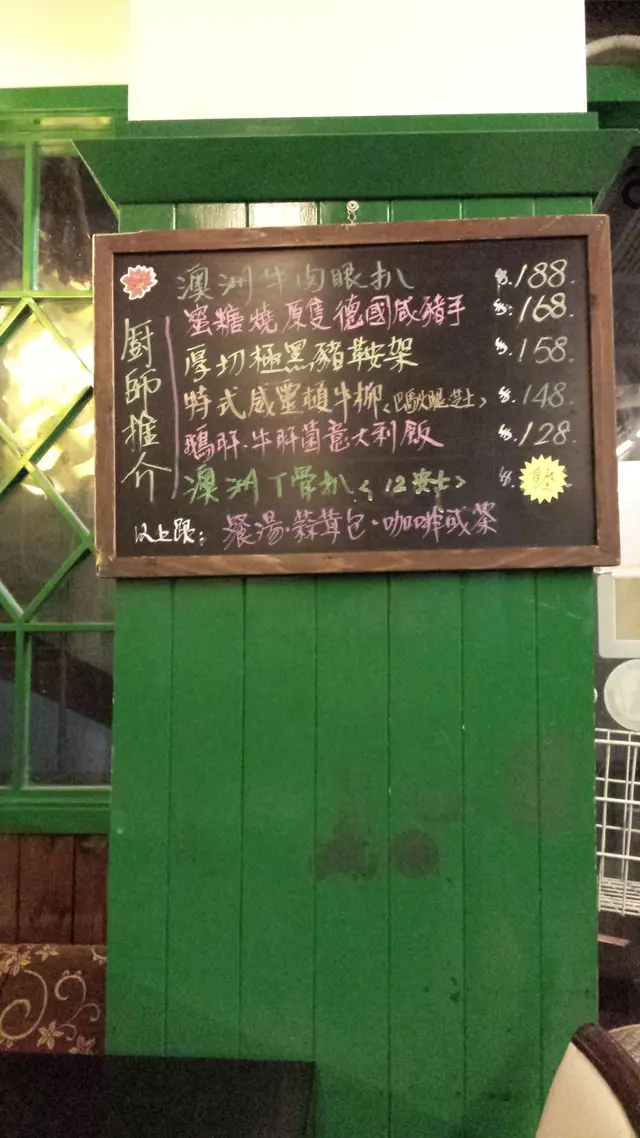 廚師推介
澳洲牛肉眼扒 $.188.
蜜糖燒原隻德國咸豬手 $.168.
厚切極黑豬鞍架 $.158.
特式威靈頓牛柳<巴馬火腿芝士> $.148.
鵝肝.牛肝菌意大利飯 $.128.
澳洲T骨扒<12安士> $.
以上跟: 餐湯.蒜茸包.咖啡或茶